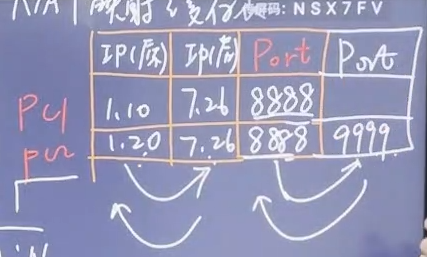 NAT映射
传屏码: NSX7FV
IP(原) IP(后) Port Port
PC1 1.10 7.26 8888
PC2 1.20 7.26 8888 9999